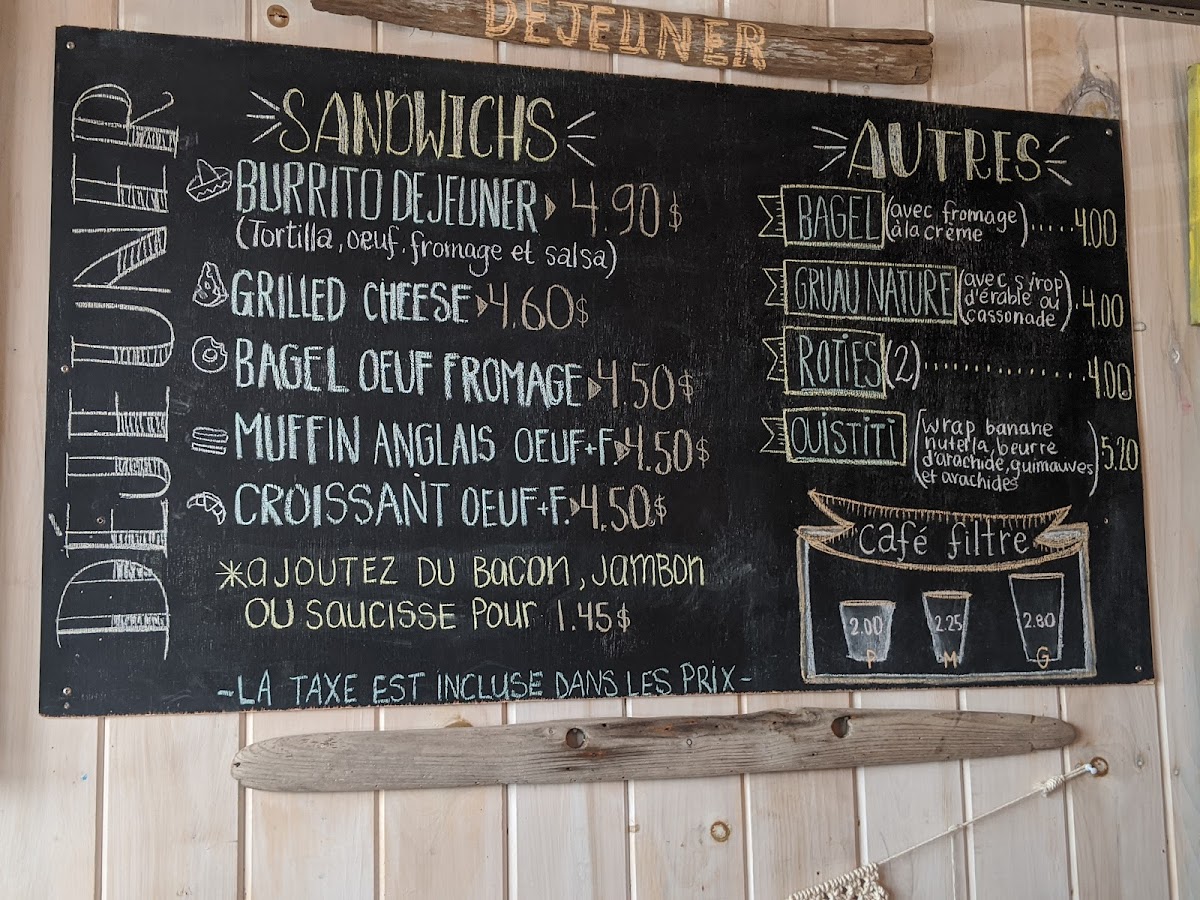 DEJEUNER
DÉJEUNER
SANDWICHS
BURRITO DEJEUNER 4.90$
(Tortilla, oeuf, fromage et salsa)
GRILLED CHEESE 4.60$
BAGEL OEUF FROMAGE 4.50$
MUFFIN ANGLAIS OEUF+F. 4.50$
CROISSANT OEUF+F. 4.50$
*AJOUTEZ DU BACON, JAMBON
OU SAUCISSE POUR 1.45$
-LA TAXE EST INCLUSE DANS LES PRIX-
AUTRES
BAGEL (avec fromage
à la crème).....4.00
GRUAU NATURE (avec sirop
d'érable ou
cassonade).4.00
ROTIES (2)................4.00
OUISTITI (wrap banane
nutella, beurre
d'arachide, guimauves
et arachides).5.20
café filtre
2.00 2.25 2.80
P M G